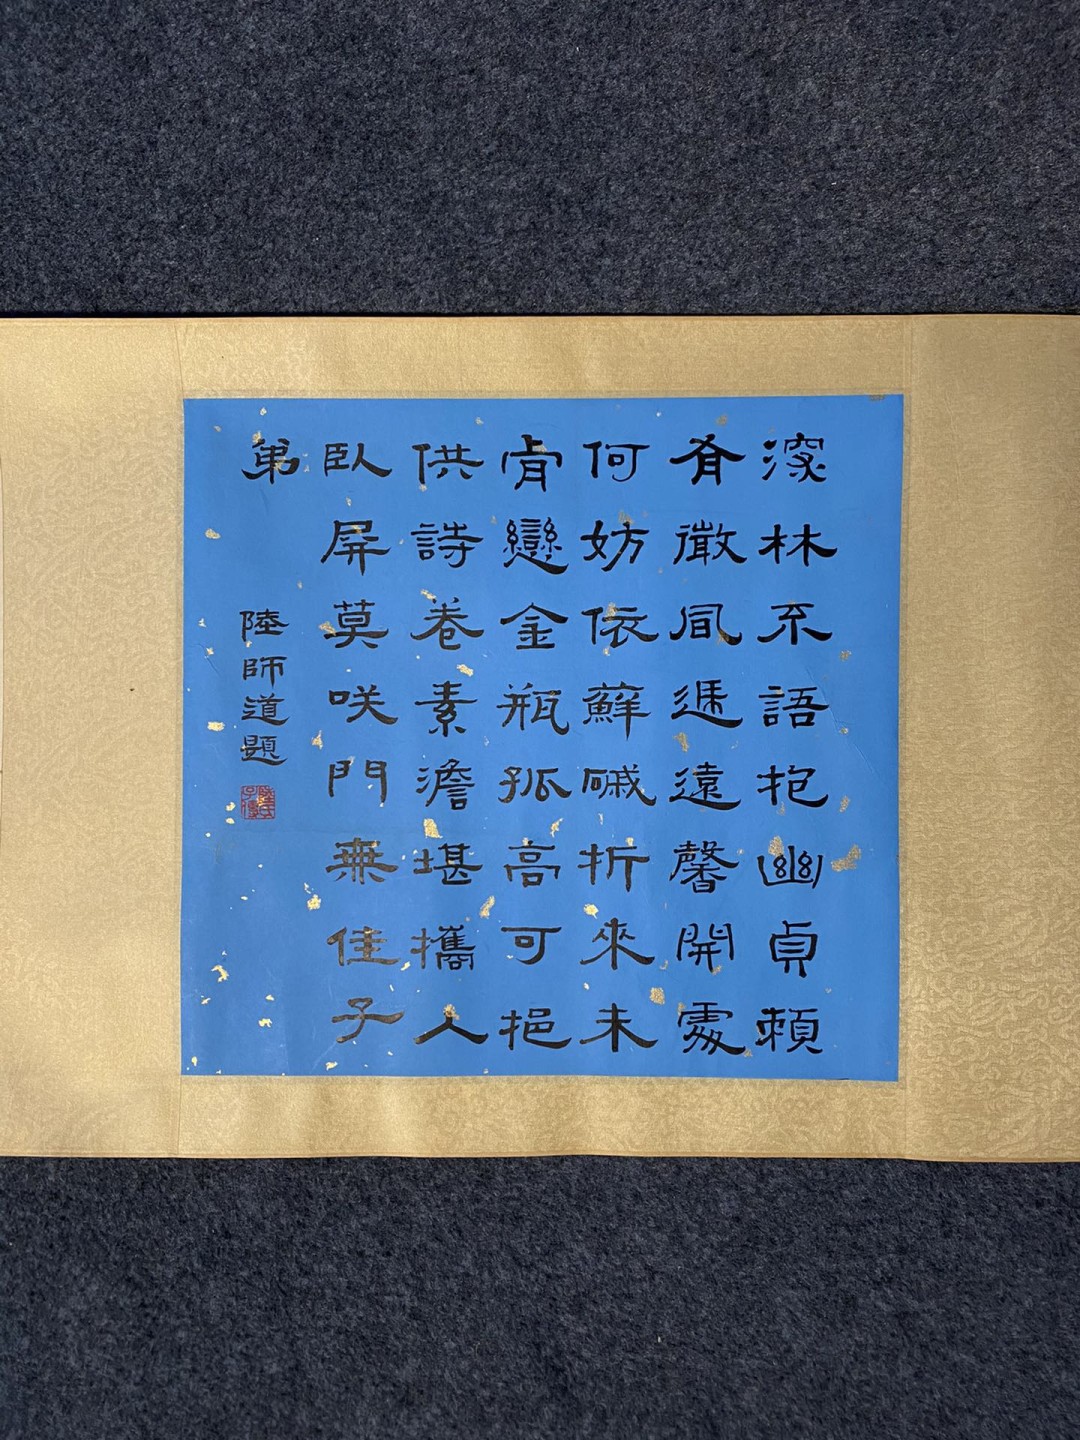 深林不語抱幽貞賴
有微風遞遠馨開處
何妨依蘚磩折來未
肯戀金瓶孤高可挹
供詩卷素澹堪攜入
臥屏莫咲門無佳子
弟
陸師道題
陸氏子傳